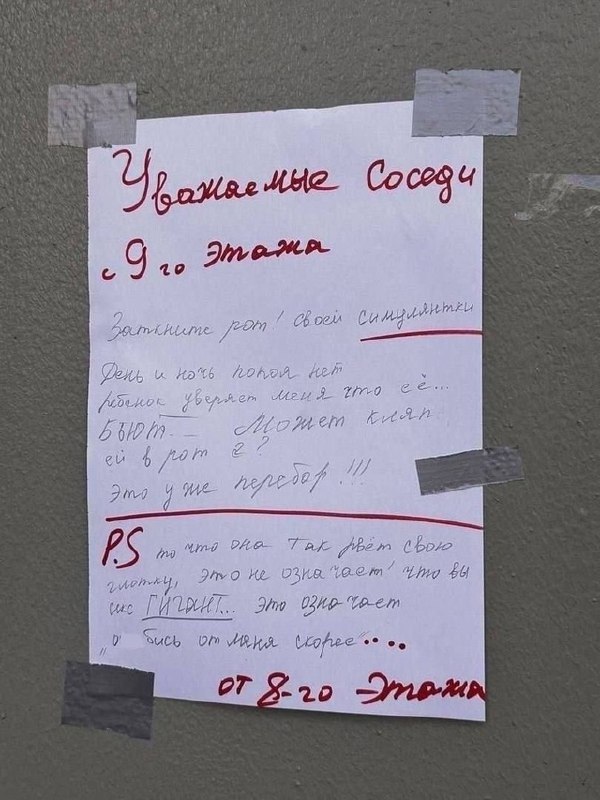 Уважаемые соседи
с 9 го этажа
Заткните рот! своей симулянтки
День и ночь покоя нет
ребёнок уверяет меня что её...
БЬЮТ... Может кляп
ей в рот ?
Это уже перебор!!!
P.S то что она так рвёт свою
глотку, это не означает что вы
секс ГИГАНТ... это означает
бись от меня скорее"....
от 8-го этажа